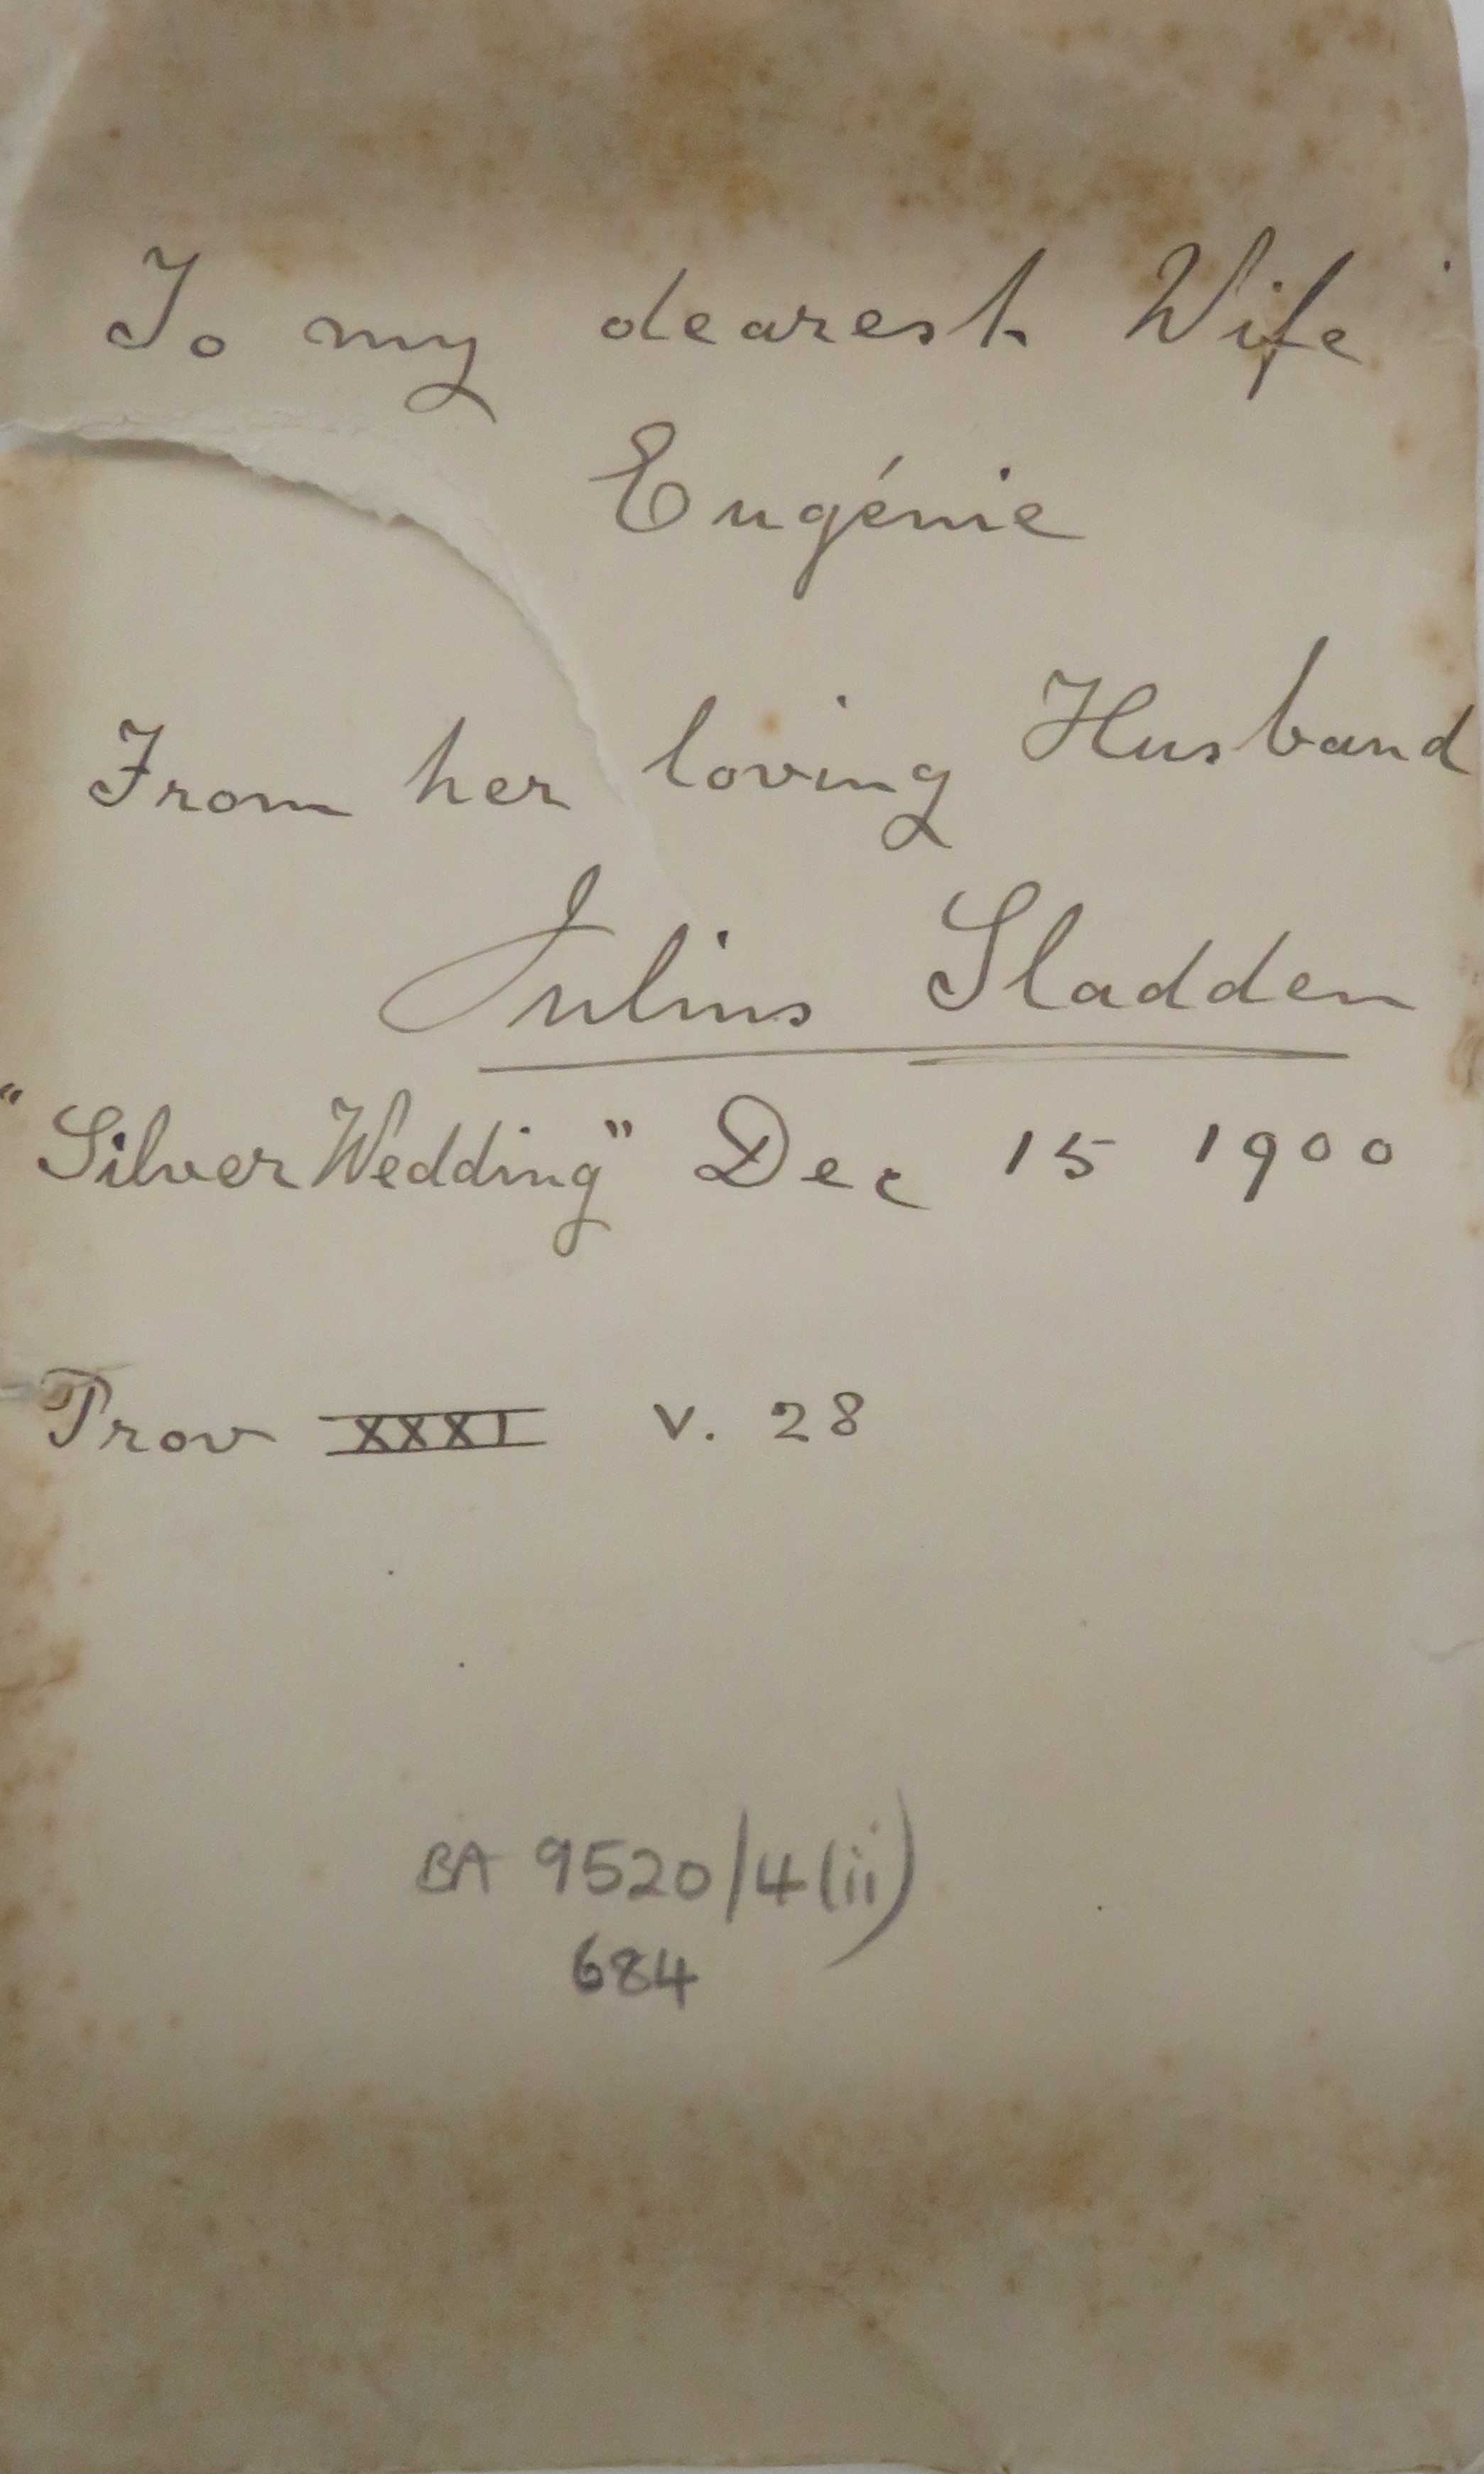 To my dearest Wife
Eugénie
From her loving Husband
Julius Sladden
"Silver Wedding" Dec 15 1900
Prov XXXI v. 28
BA 9520/4(ii)
684